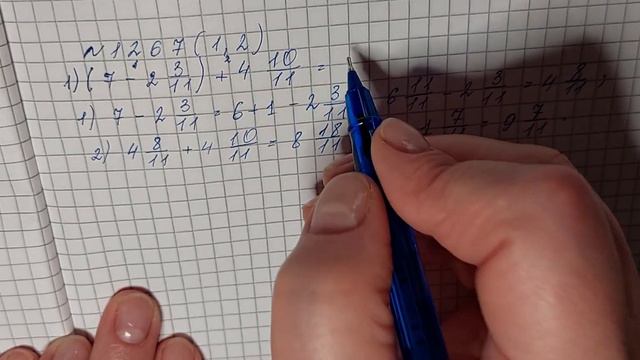 № 1267 (1, 2)
1) (7 - 2 3/11) + 4 10/11 =
1) 7 - 2 3/11 = 6 + 1 - 2 3/11 6 11/11 - 2 3/11 = 4 8/11;
2) 4 8/11 + 4 10/11 = 8 18/11 7/11 = 9 7/11.